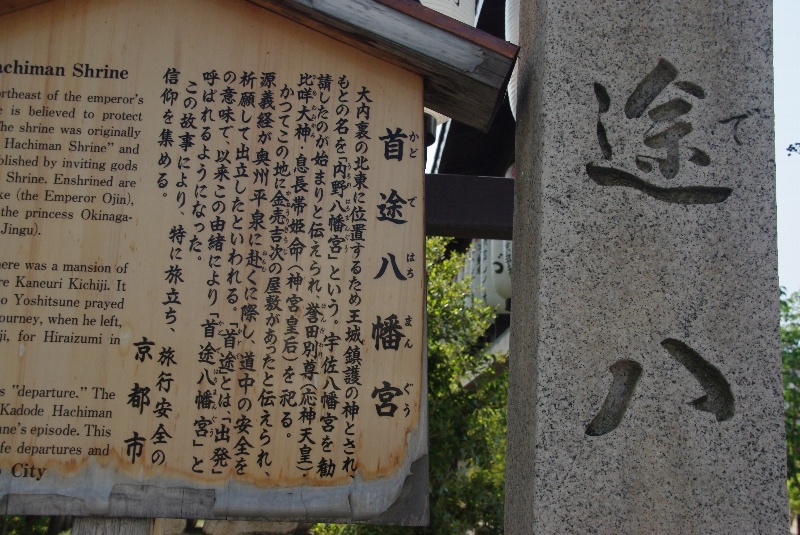 首途八幡宮
かどではちまんぐう
大内裏の北東に位置するため王城鎮護の神とされ、
もとの名を「内野八幡宮」という。宇佐八幡宮を勧
請したのが始まりと伝えられ、誉田別尊(応神天皇)・
比咩大神・息長帯姫命(神宮皇后)を祀る。
かつてこの地に金売吉次の屋敷があったと伝えられ、
源義経が奥州平泉に赴くに際し、道中の安全を
祈願して出立したといわれる。「首途」とは、「出発」
の意味で、以来この由緒により「首途八幡宮」と
呼ばれるようになった。
この故事により、特に旅立ち、旅行安全の
信仰を集める。
京都市
achiman Shrine
rtheast of the emperor's
e is believed to protect
he shrine was originally
Hachiman Shrine" and
blished by inviting gods
Shrine. Enshrined are
ke (the Emperor Ojin),
the princess Okinaga-
Jingu).
here was a mansion of
re Kaneuri Kichiji. It
o Yoshitsune prayed
ourney, when he left,
ji, for Hiraizumi in
s "departure." The
Kadode Hachiman
une's episode. This
fe departures and
City
途八
で